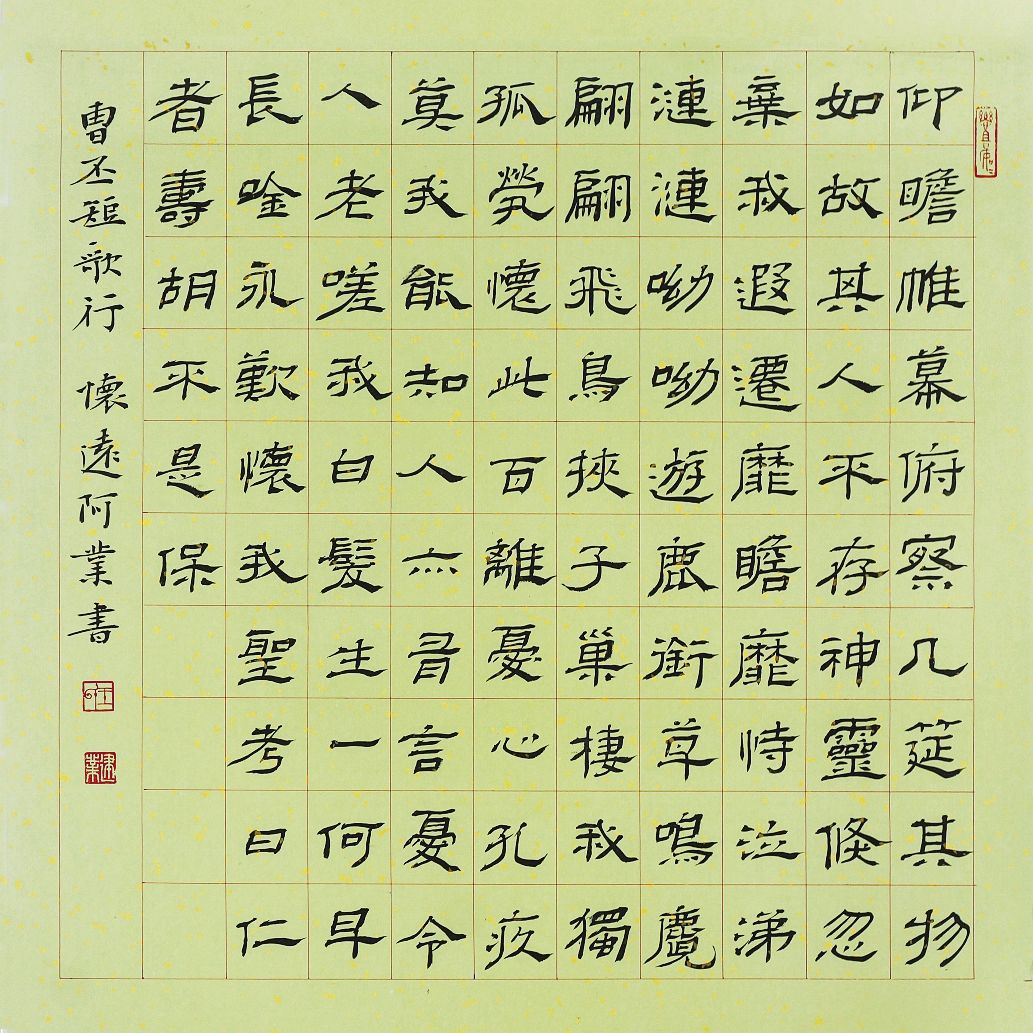 仰瞻帷幕俯察几筵其物
如故其人不存神靈倏忽
棄我遐遷靡瞻靡恃泣涕
漣漣呦呦遊鹿銜草鳴麑
翩翩飛鳥挾子巢棲我獨
孤煢懷此百離憂心孔疚
莫我能知人亦有言憂令
人老嗟我白髮生一何早
長吟永歎懷我聖考曰仁
者壽胡不是保
曹丕短歌行 懷遠阿業書
建業